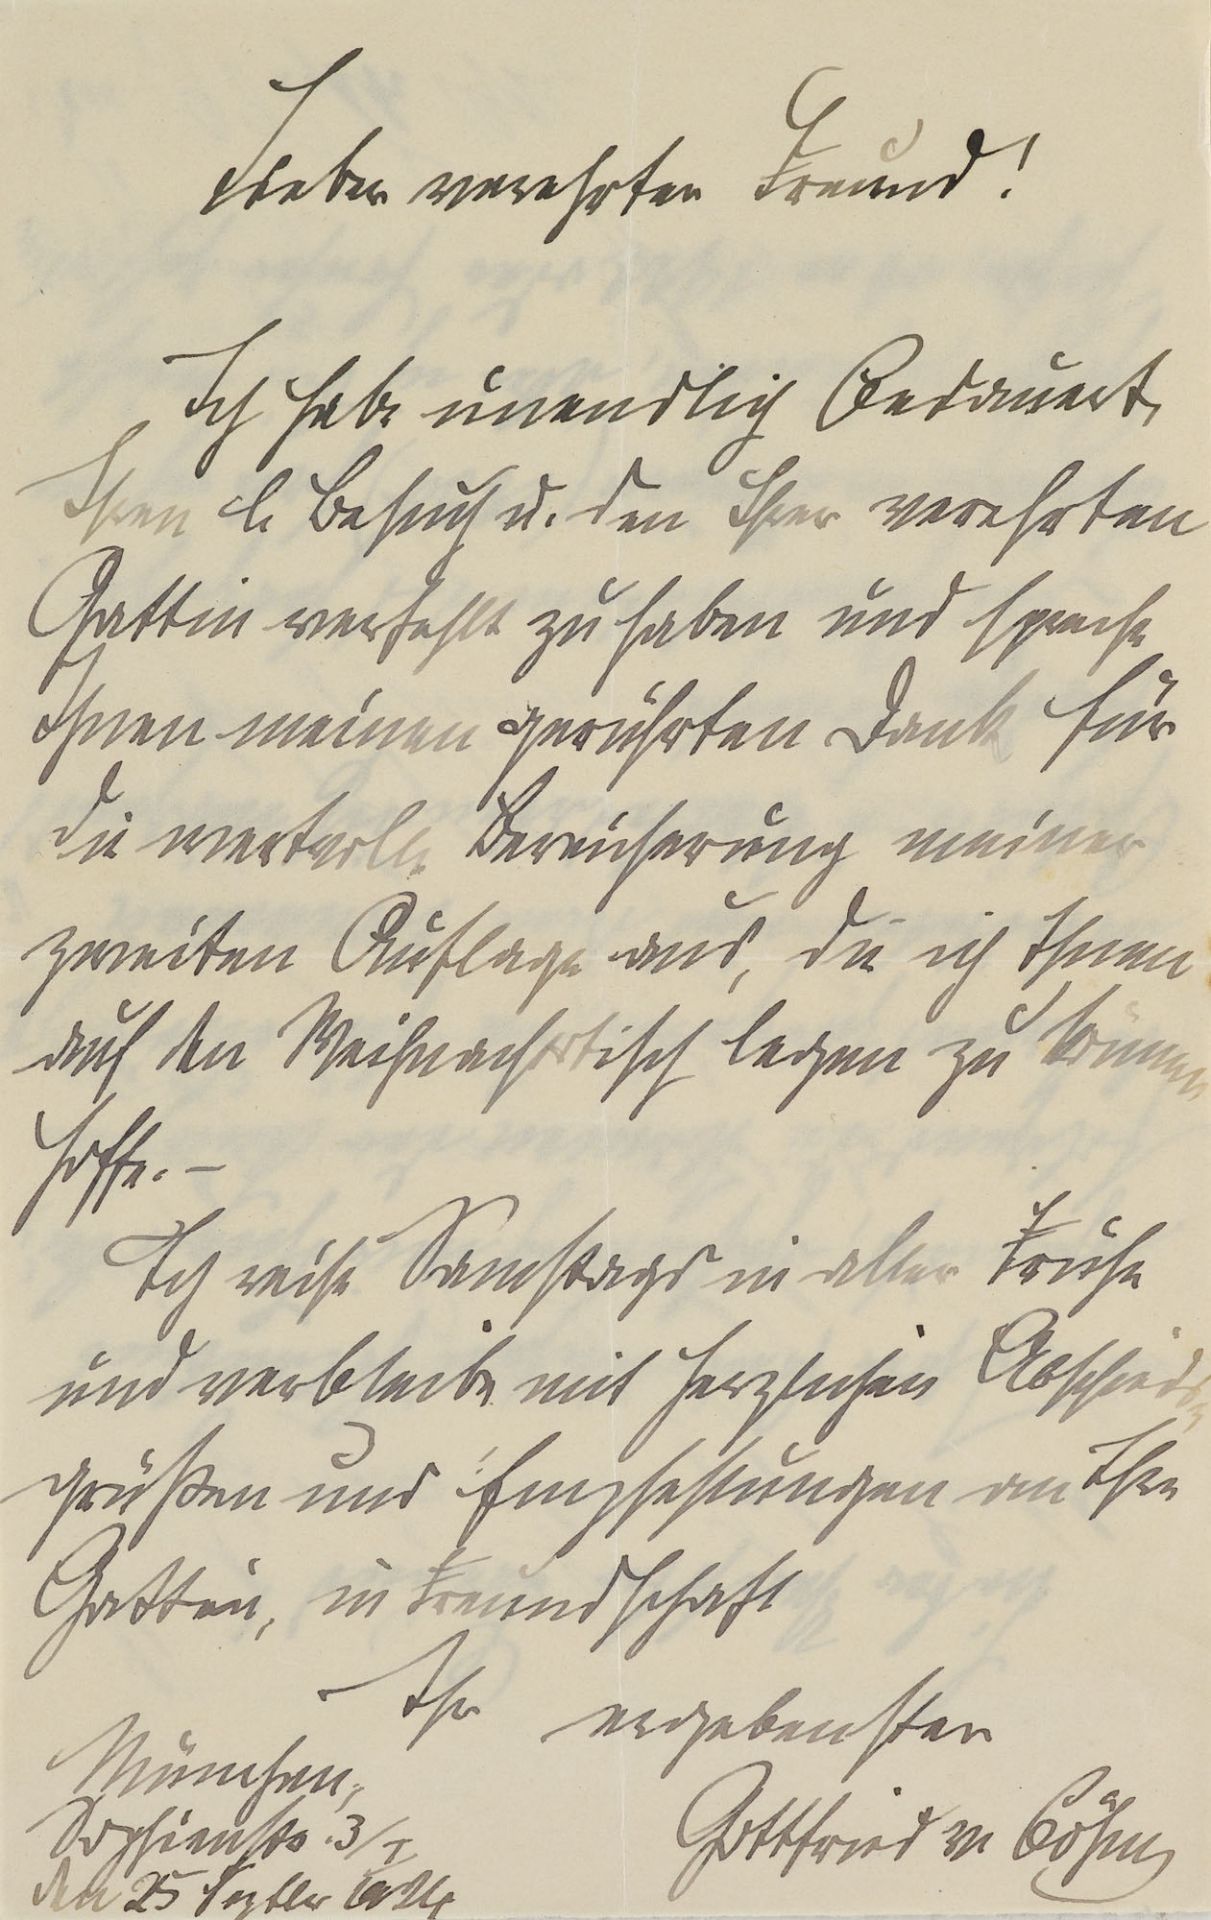 Lieber verehrter Freund!
Ich habe unendlich bedauert,
Ihren l. Besuch u. den Ihrer verehrten
Gattin verfehlt zu haben und spreche
Ihnen meinen gerührten Dank für
die wertvolle Bereicherung meiner
zweiten Auflage aus, die ich Ihnen
auf den Weihnachtstisch legen zu können
hoffe. –
Ich reise Samstags in aller Frühe
und verbleibe mit herzlichen Abschieds-
grüßen und Empfehlungen an Ihre
Gattin, in Freundschaft
Ihr ergebenster
Gottfried v Böhm
München,
Sophienstr. 3/I
den 25 Septber